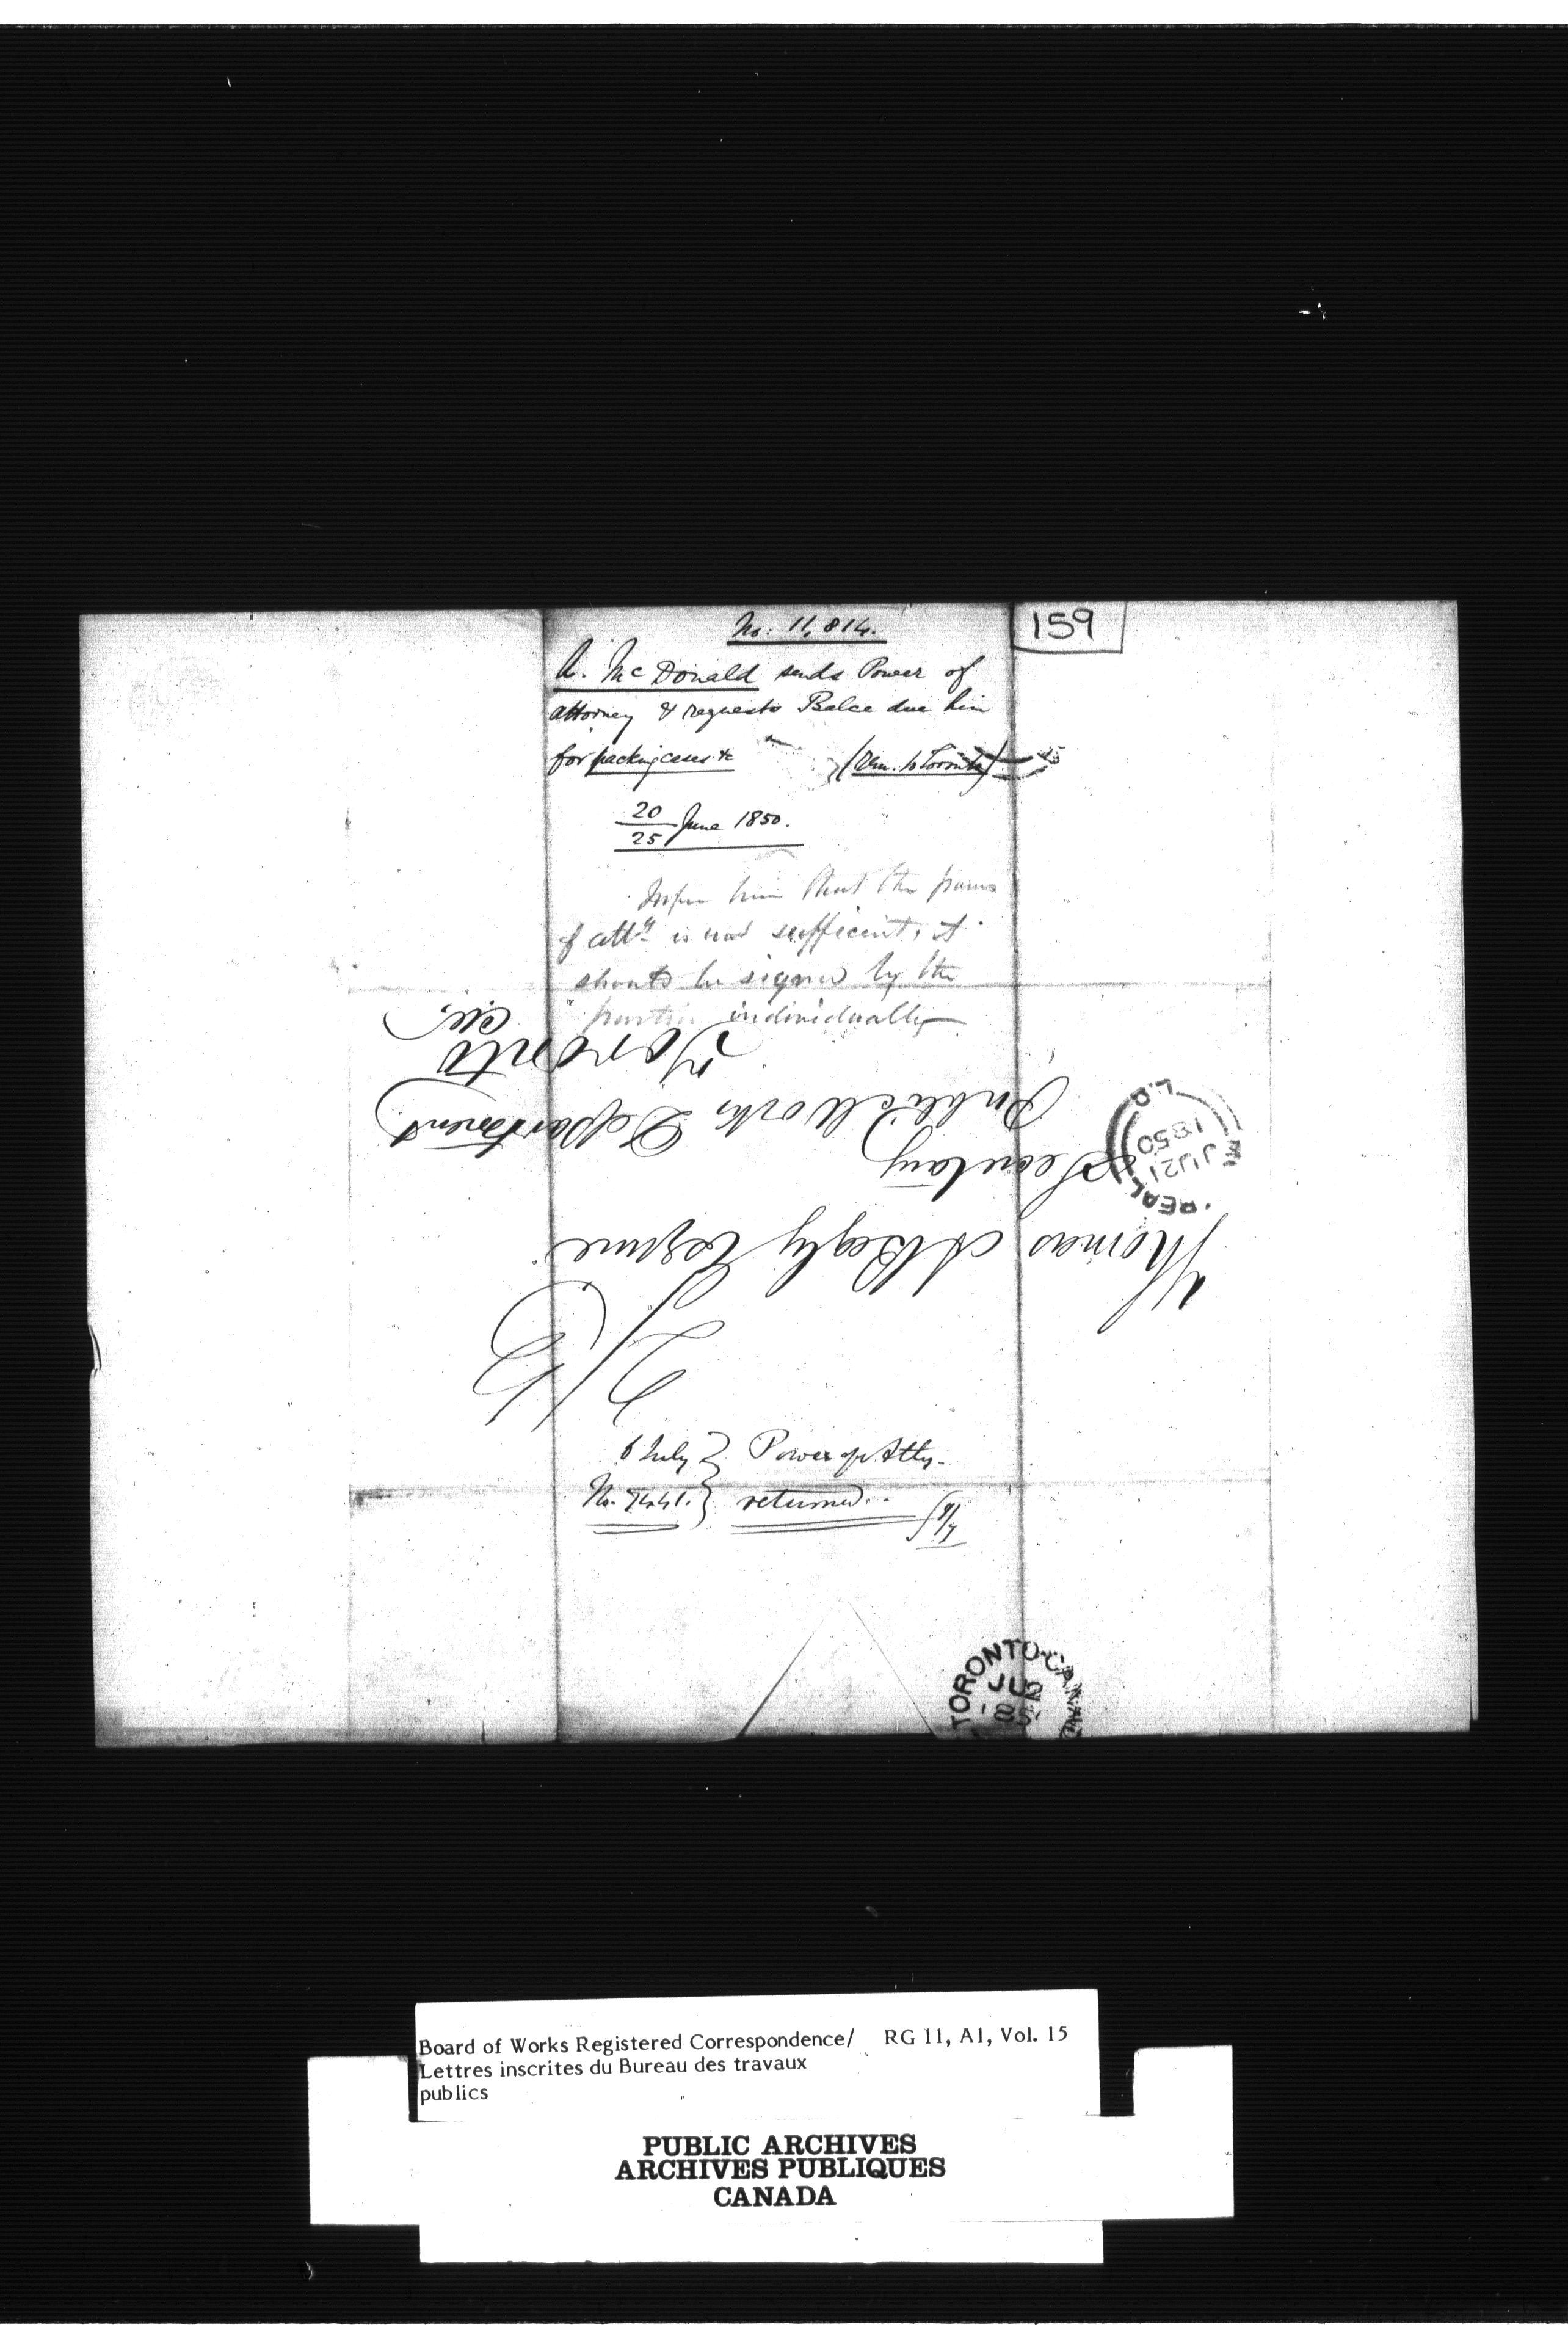 No: 11,814.
159
A. McDonald sends Power of
attorney & requests Balce due him
for packing cases &c (Rem. to Toronto)
20
25 June 1850.
Inform him that the power
of atty is not sufficient, it
should be signed by the
parties individually
Thomas A Begly Esquire
Secretary
Public Works Department
Toronto
REAL
JU 21
1850
L.C
6 July } Power of Atty.
No. } returned..
TORONTO CANADA
JU
185
Board of Works Registered Correspondence/ RG 11, A1, Vol. 15
Lettres inscrites du Bureau des travaux
publics
PUBLIC ARCHIVES
ARCHIVES PUBLIQUES
CANADA